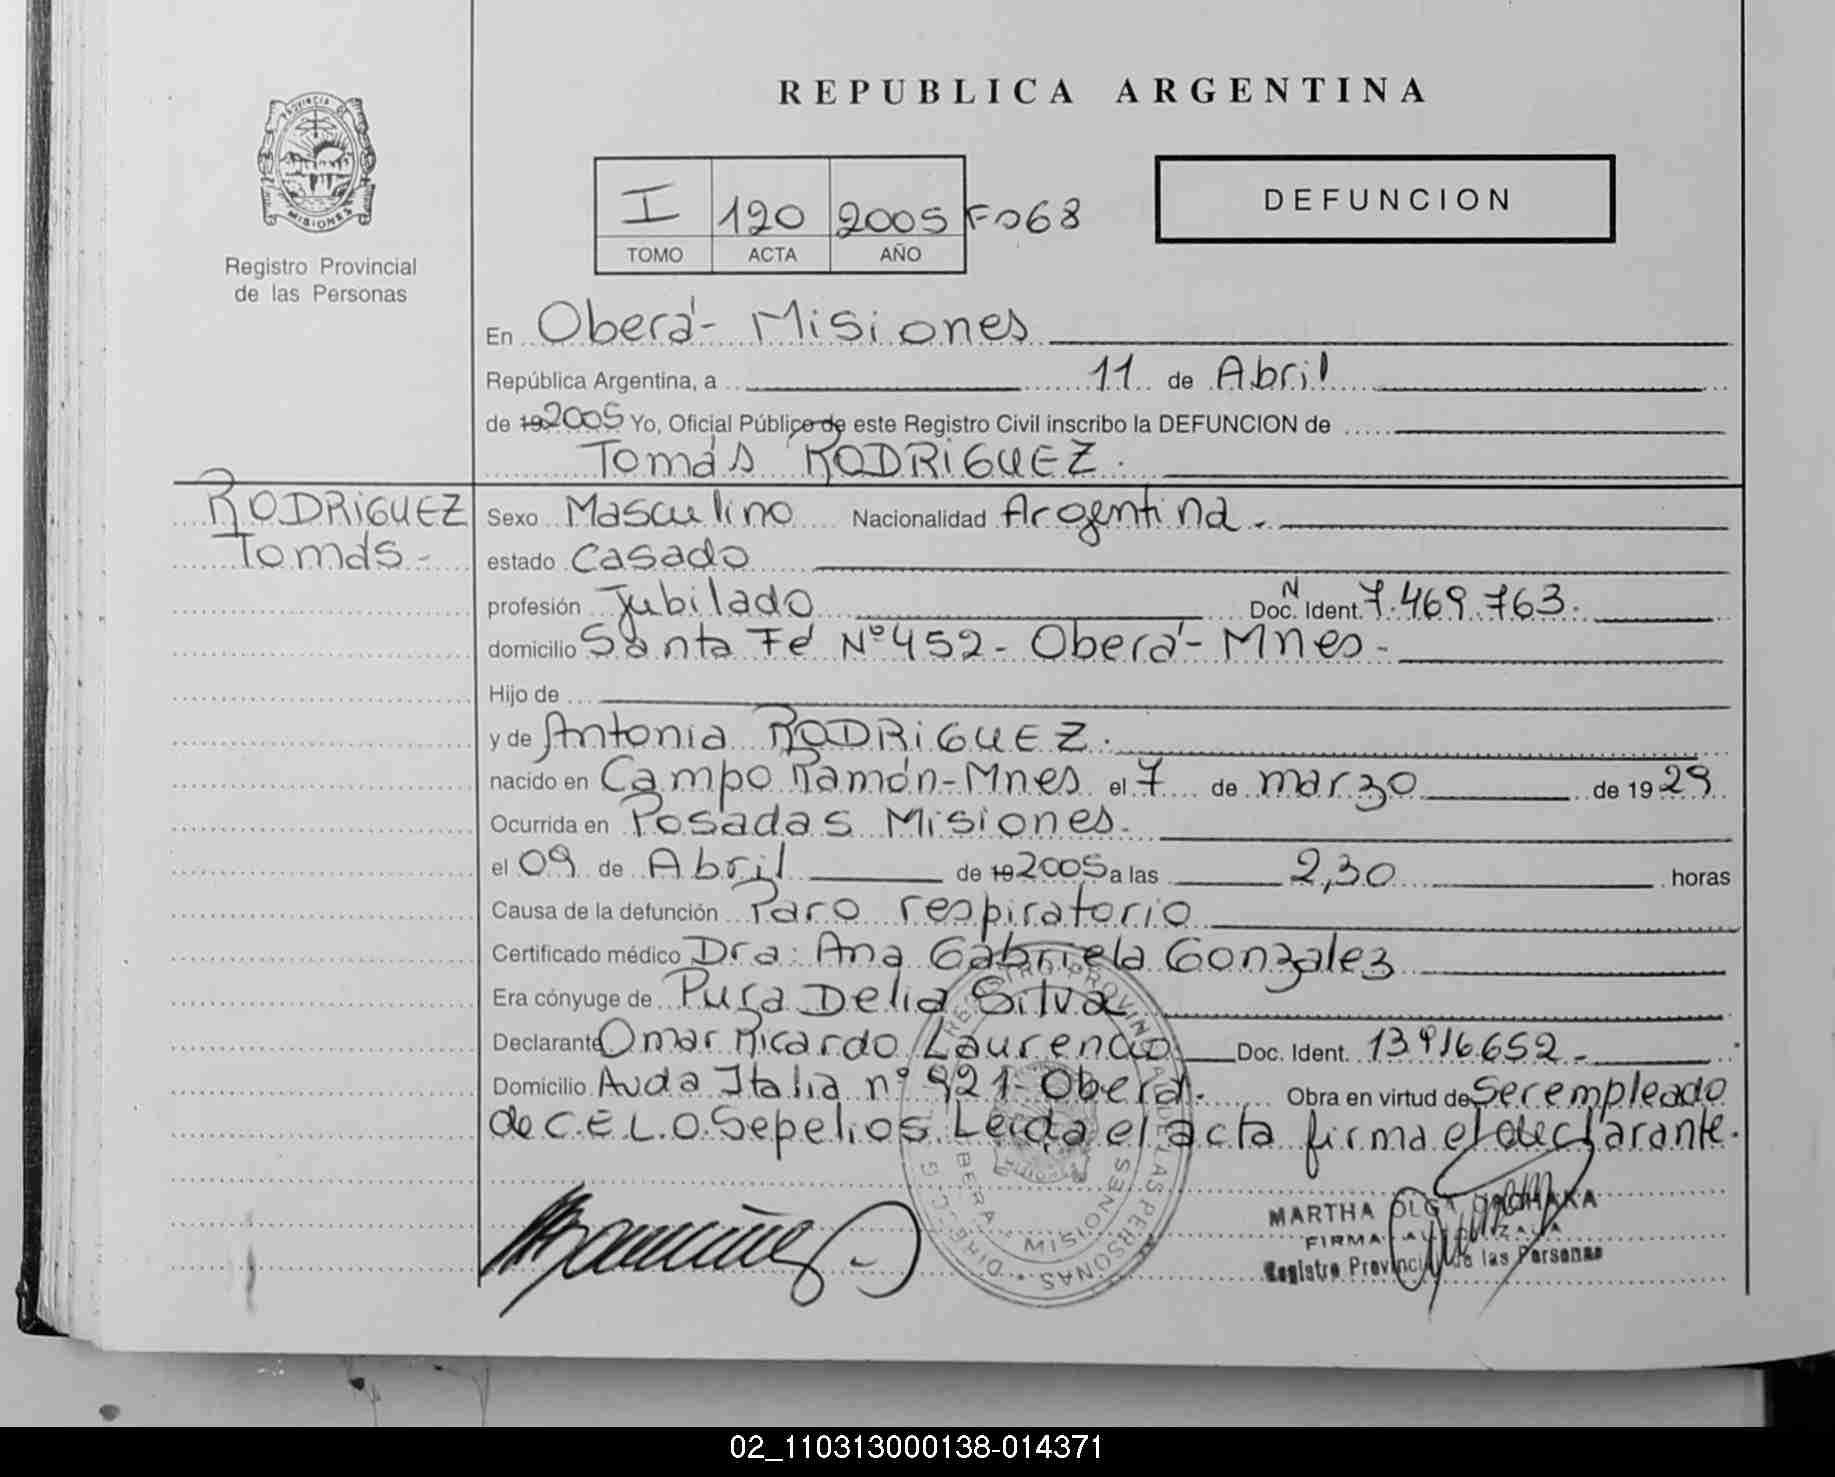 REPUBLICA ARGENTINA
PROVINCIA DE
MISIONES
Registro Provincial
de las Personas
I 120 2005 Fº068
TOMO ACTA AÑO
DEFUNCION
En Oberá - Misiones
República Argentina, a 11 de Abril
de 19 2005 Yo, Oficial Público de este Registro Civil inscribo la DEFUNCION de
Tomás RODRIGUEZ.
RODRIGUEZ
Tomás -
Sexo Masculino Nacionalidad Argentina.
estado Casado
profesión Jubilado Doc. N Ident. 7.469.763.
domicilio Santa Fé Nº 452 - Oberá - Mnes -
Hijo de
y de Antonia RODRIGUEZ.
nacido en Campo Ramón - Mnes el 7 de marzo de 19 29
Ocurrida en Posadas Misiones.
el 09 de Abril de 19 2005 a las 2,30 horas
Causa de la defunción Paro respiratorio
Certificado médico Dra: Ana Gabriela Gonzalez
Era cónyuge de Pura Delia Silva
Declarante Omar Ricardo Laurencio Doc. Ident. 13916652 -
Domicilio Avda Italia nº 921 - Oberá. Obra en virtud de Ser empleado
de C.E.L.O. Sepelios. Leída el acta firma el declarante.
REGISTRO PROVINCIAL DE LAS PERSONAS
OBERA - MISIONES
MARTHA OLGA
FIRMA
Registro Provincial de las Personas
02_110313000138-014371